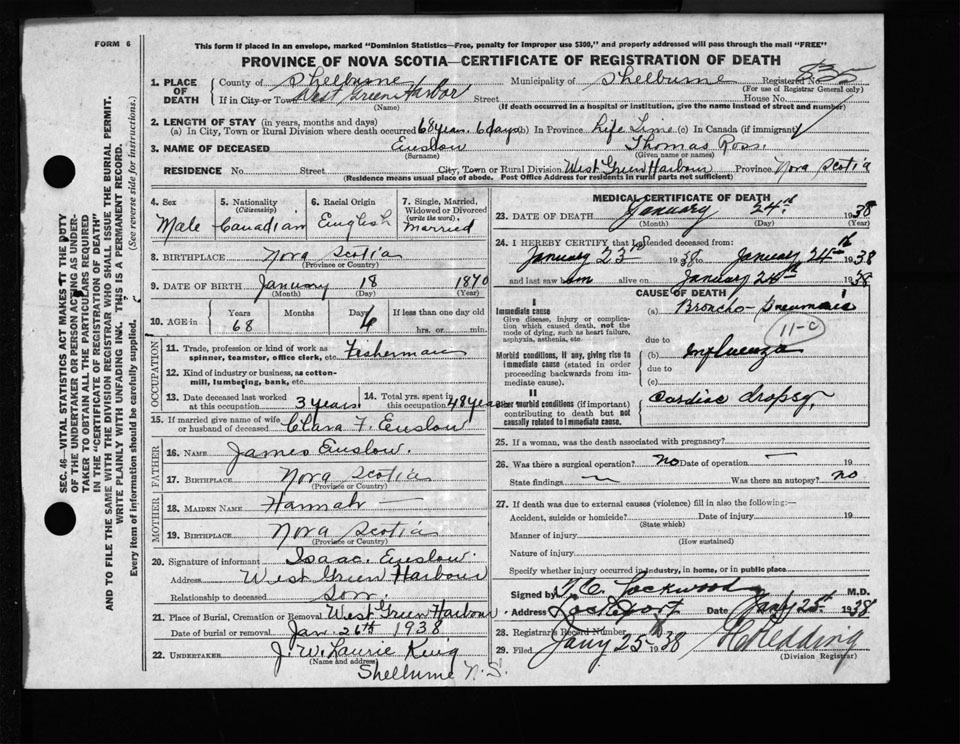 FORM 6
This form if placed in an envelope, marked "Dominion Statistics—Free, penalty for improper use $300," and properly addressed will pass through the mail "FREE"
PROVINCE OF NOVA SCOTIA—CERTIFICATE OF REGISTRATION OF DEATH
SEC. 46—VITAL STATISTICS ACT MAKES IT THE DUTY
OF THE UNDERTAKER OR PERSON ACTING AS UNDER-
TAKER TO OBTAIN ALL THE PARTICULARS REQUIRED
IN THE "CERTIFICATE OF REGISTRATION OF DEATH"
AND TO FILE THE SAME WITH THE DIVISION REGISTRAR WHO SHALL ISSUE THE BURIAL PERMIT.
WRITE PLAINLY WITH UNFADING INK. THIS IS A PERMANENT RECORD.
Every item of information should be carefully supplied. (See reverse side for instructions.)
1. PLACE OF DEATH County of Shelburne Municipality of Shelburne Registered No. 835
(For use of Registrar General only)
If in City or Town West Green Harbor Street House No.
(Name) (If death occurred in a hospital or institution, give name instead of street and number)
2. LENGTH OF STAY (in years, months and days)
(a) In City, Town or Rural Division where death occurred 68 years 6 days (b) In Province Life Time (c) In Canada (if immigrant)
3. NAME OF DECEASED Enslow Thomas Ross.
(Surname) (Given name or names)
RESIDENCE No. Street City, Town or Rural Division West Green Harbour Province Nova Scotia
(Residence means usual place of abode. Post Office Address for residents in rural parts not sufficient)
4. Sex Male
5. Nationality (Citizenship) Canadian
6. Racial Origin English
7. Single, Married, Widowed or Divorced (write the word) Married
8. BIRTHPLACE Nova Scotia
(Province or Country)
9. DATE OF BIRTH January 18 1870
(Month) (Day) (Year)
10. AGE in Years Months Days If less than one day
68 6 hrs. or min.
OCCUPATION
11. Trade, profession or kind of work as spinner, teamster, office clerk, etc. Fisherman
12. Kind of industry or business, as cotton-mill, lumbering, bank, etc.
13. Date deceased last worked at this occupation 3 years
14. Total yrs. spent in this occupation 48 years
15. If married give name of wife or husband of deceased Clara F. Enslow
FATHER
16. NAME James Enslow.
17. BIRTHPLACE Nova Scotia
(Province or Country)
MOTHER
18. MAIDEN NAME Hannah —
19. BIRTHPLACE Nova Scotia
(Province or Country)
20. Signature of informant Isaac Enslow.
Address West Green Harbour
Relationship to deceased Son.
21. Place of Burial, Cremation or Removal West Green Harbour
Date of burial or removal Jan. 26th 1938
22. UNDERTAKER J. W. Laurie King
(Name and address)
Shelburne N. S.
MEDICAL CERTIFICATE OF DEATH
23. DATE OF DEATH January 24th 1938
(Month) (Day) (Year)
24. I HEREBY CERTIFY that I attended deceased from:
January 23rd 1938 to January 24th 1938
and last saw him alive on January 24th 1938
CAUSE OF DEATH
I
Immediate cause (a) Broncho Pneumonia
Give disease, injury or complication which caused death, not the mode of dying, such as heart failure, asphyxia, asthenia, etc.
due to
11-c
Morbid conditions, if any, giving rise to immediate cause (stated in order proceeding backwards from immediate cause).
(b) Influenza
due to
(c)
II
Other morbid conditions (if important) contributing to death but not causally related to immediate cause.
Cardiac dropsy,
25. If a woman, was the death associated with pregnancy?
26. Was there a surgical operation? no Date of operation — 19
State findings — Was there an autopsy? no
27. If death was due to external causes (violence) fill in also the following:—
Accident, suicide or homicide? Date of injury 19
(State which)
Manner of injury
(How sustained)
Nature of injury
Specify whether injury occurred in industry, in home, or in public place
Signed by Lockwood M.D.
Address Lockeport Date Jany 25th 1938
28. Registrar's Record Number
29. Filed Jany 25 1938 Redding
(Division Registrar)